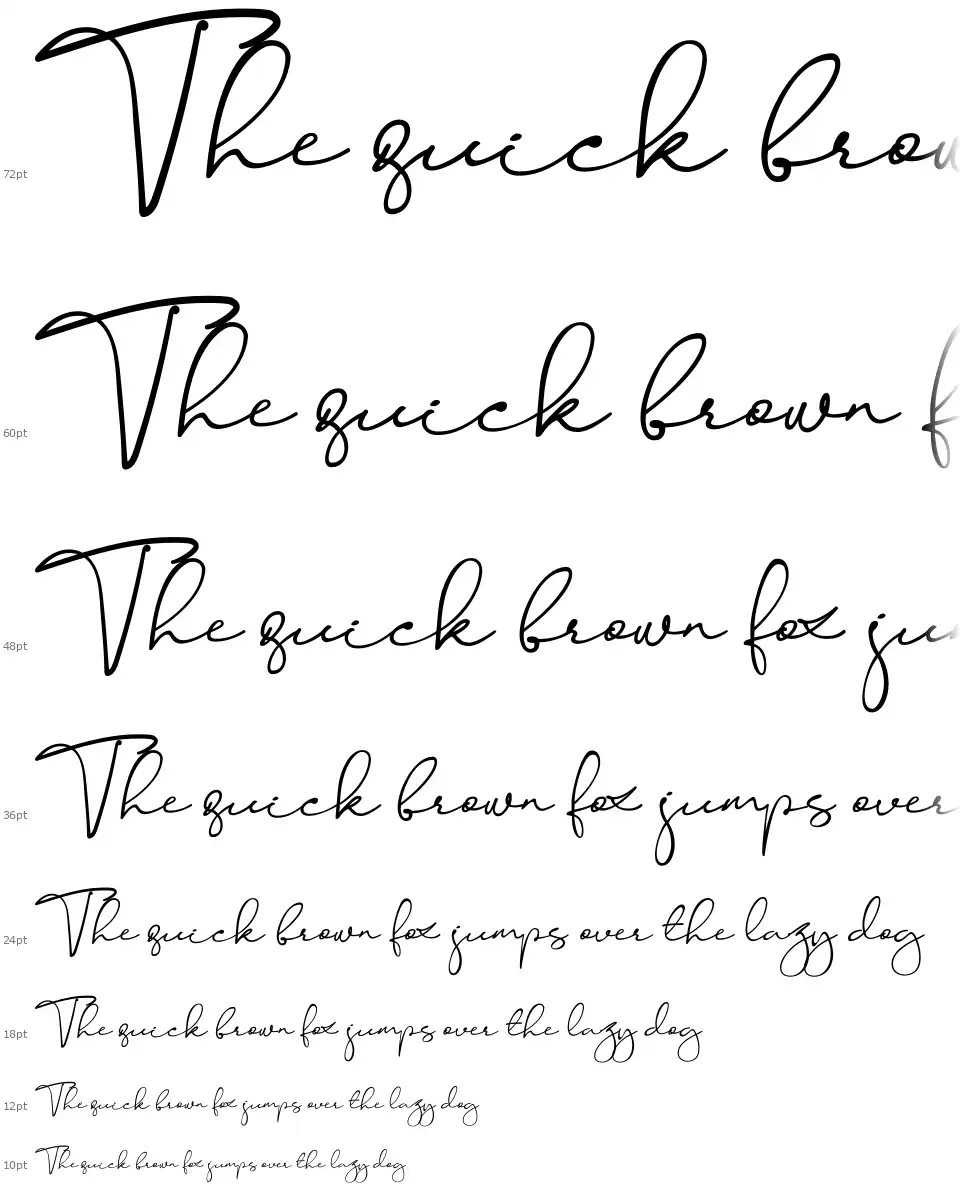 72pt The quick brow
60pt The quick brown f
48pt The quick brown fox ju
36pt The quick brown fox jumps over
24pt The quick brown fox jumps over the lazy dog
18pt The quick brown fox jumps over the lazy dog
12pt The quick brown fox jumps over the lazy dog
10pt The quick brown fox jumps over the lazy dog